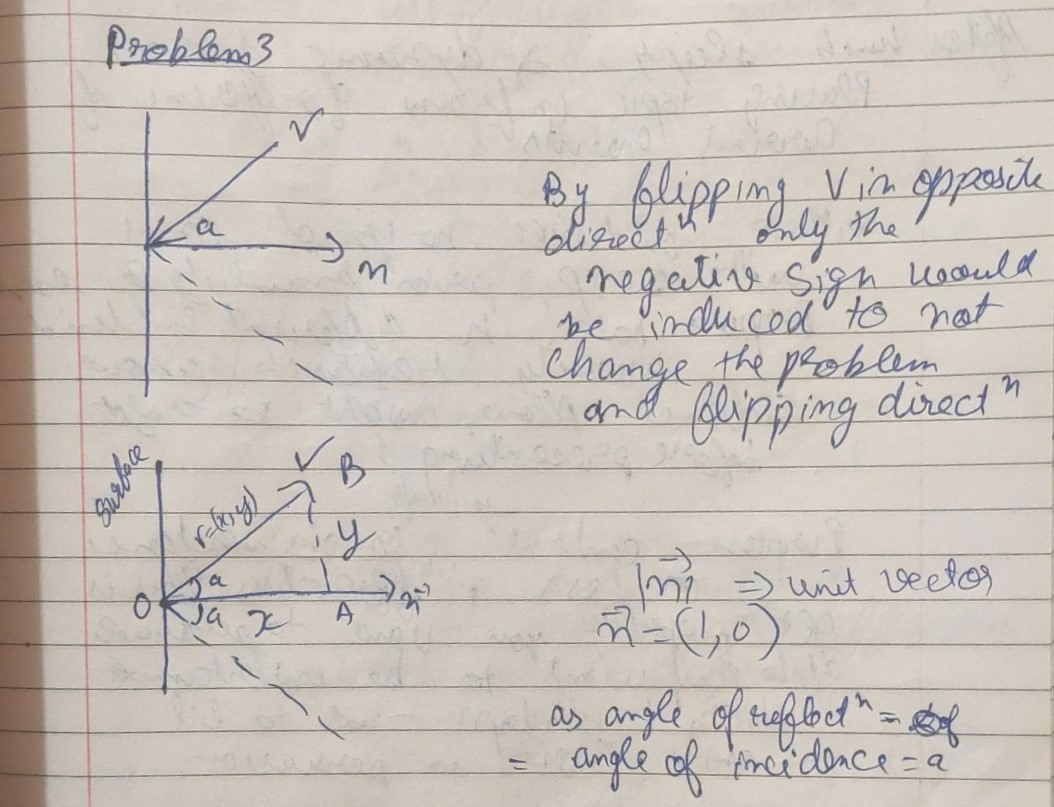 Problem 3
V
a
n
By flipping V in opposite
directⁿ only the
negative sign would
be induced to not
change the problem
and flipping directⁿ
Surface
V B
r=(x,y)
y
a
O a x A n⃗
|n⃗| ⇒ unit vector
n⃗ = (1, 0)
as angle of reflectⁿ =
= angle of incidence = a